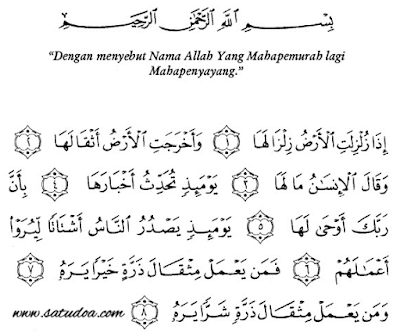 بِسْمِ اللَّهِ الرَّحْمَٰنِ الرَّحِيمِ
“Dengan menyebut Nama Allah Yang Mahapemurah lagi
Mahapenyayang.”
إِذَا زُلْزِلَتِ الْأَرْضُ زِلْزَالَهَا ١ وَأَخْرَجَتِ الْأَرْضُ أَثْقَالَهَا ٢
وَقَالَ الْإِنسَانُ مَا لَهَا ٣ يَوْمَئِذٍ تُحَدِّثُ أَخْبَارَهَا ٤ بِأَنَّ
رَبَّكَ أَوْحَىٰ لَهَا ٥ يَوْمَئِذٍ يَصْدُرُ النَّاسُ أَشْتَاتًا لِّيُرَوْا
أَعْمَالَهُمْ ٦ فَمَن يَعْمَلْ مِثْقَالَ ذَرَّةٍ خَيْرًا يَرَهُ ٧
وَمَن يَعْمَلْ مِثْقَالَ ذَرَّةٍ شَرًّا يَرَهُ ٨ www.satudoa.com